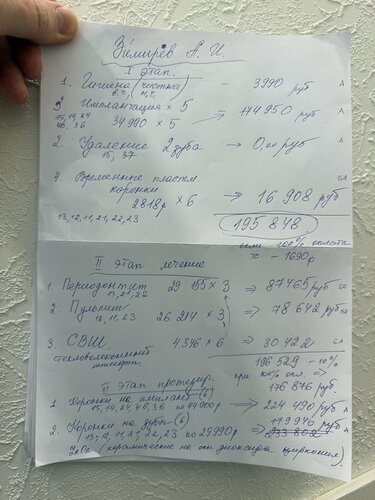 Зимирев А. И.
I этап.
1. Гигиена (чистка) - 3990 руб А
в.ч, н.ч.
3. Имплантация × 5
15, 14, 24 34 990 × 5 → 174 950 руб А
46, 36
2. Удаление 2 зуба → 0,00 руб А
15, 37
4. Временные пластм. СА
коронки
2818р × 6 ⇒ 16 908 руб
13, 12, 11, 21, 22, 23
195 848
если 100% оплата
то - 1690р
II этап лечение
1. Периодонтит 29 155 × 3 ⇒ 87465 руб СА
13, 21, 22
2. Пульпит 26 214 × 3 ⇒ 78 642 руб СА
12, 11, 23
3. СВШ. 4346 × 6 ⇒ 30 422 СА
стекловолоконный
штифт.
196 529 - 10%
при 100% опл. ⇒
176 876 руб
II этап протезир.
1. Коронки на имплант (6)
15, 14, 24, 46, 36 по 44900р ⇒ 224 490 руб А
2. Коронки на зубы (6) 179 946 руб
13, 12, 11, 21, 22, 23 по 29990р ⇒ А
ZrO2 (керамические на осн. диоксида циркония).